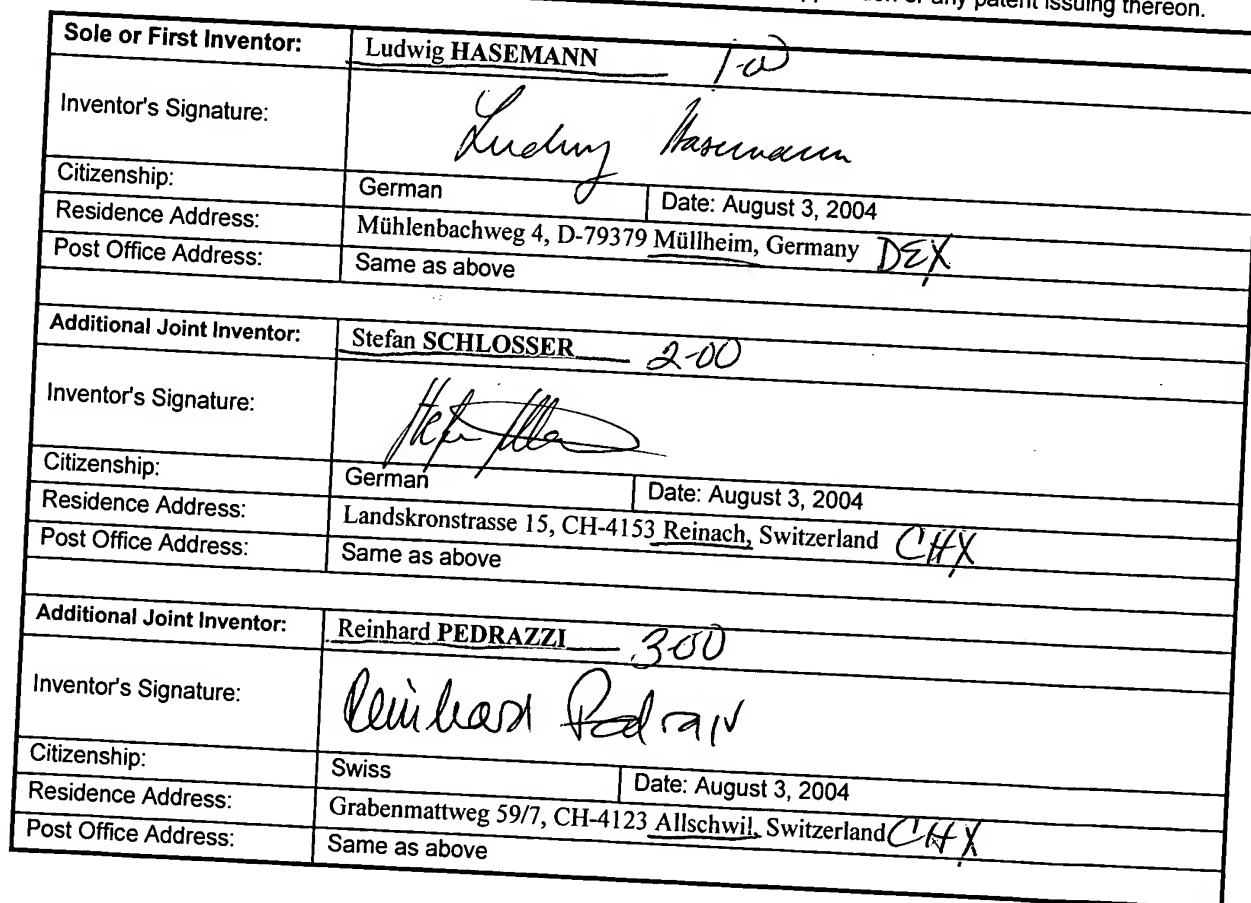 any patent issuing thereon.
Sole or First Inventor: Ludwig HASEMANN 1-00
Inventor's Signature: Ludwig Hasemann
Citizenship: German Date: August 3, 2004
Residence Address: Mühlenbachweg 4, D-79379 Müllheim, Germany DEX
Post Office Address: Same as above
Additional Joint Inventor: Stefan SCHLOSSER 2-00
Inventor's Signature:
Citizenship: German Date: August 3, 2004
Residence Address: Landskronstrasse 15, CH-4153 Reinach, Switzerland CHX
Post Office Address: Same as above
Additional Joint Inventor: Reinhard PEDRAZZI 300
Inventor's Signature: Reinhard Pedrazzi
Citizenship: Swiss Date: August 3, 2004
Residence Address: Grabenmattweg 59/7, CH-4123 Allschwil, Switzerland CHX
Post Office Address: Same as above